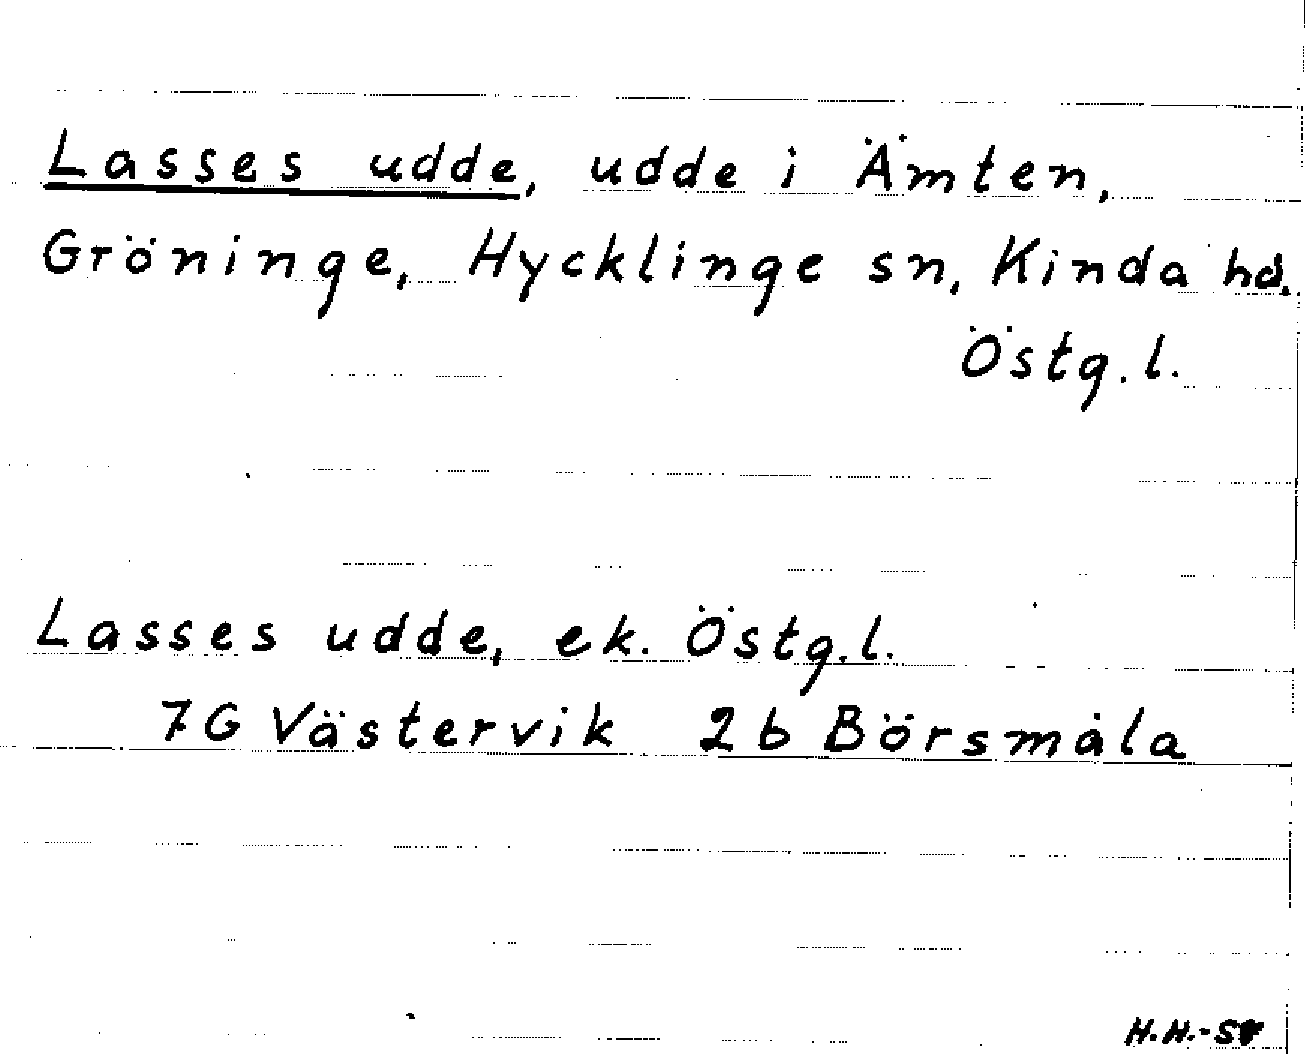 Lasses udde, udde i Ämten,
Gröninge, Hycklinge sn, Kinda hd.
Östg.l.
Lasses udde, ek. Östg.l.
7G Västervik 2b Börsmåla
H.H.-